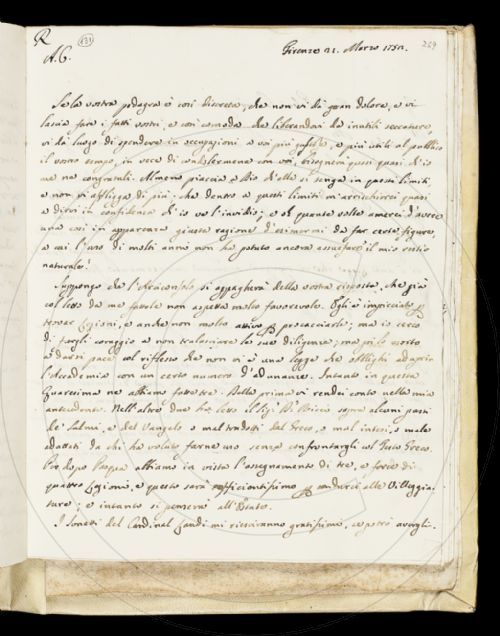 R
A. C.
(131)
269
Firenze 21. Marzo 1752.
Se la vostra podagra è così discreta, che non vi dà gran dolore, e vi
lascia fare i fatti vostri, e così comoda che liberandovi da inutili seccature,
vi dà luogo di spendere in occupazioni a voi più gustose, e più utili al pubblico
il vostro tempo, in vece di condolermene con voi, bisognerà quasi quasi ch'io
me ne congratuli. Almeno piaccia a Dio ch'ella si tenga in questi limiti,
e non vi affligga di più; che dentro a questi limiti mi arrischierei quasi
a dirvi in confidenza ch'io ve l'invidio; e oh quante volte amerei d'avere
una così in apparenza giusta ragione d'esimermi da far certe figure,
a cui l'uso di molti anni non ha potuto ancora assuefare il mio restio
naturale!
Suppongo che l'Arciconsolo si appagherà della vostra risposta, che già
col testo da me fattole non aspetta molto favorevole. Egli è impicciato per
trovar Lezioni, e anche non molto attivo per procacciarle; ma io cerco
di fargli coraggio a non tralasciare le sue diligenze, ma poi lo esorto
a darsi pace col riflesso che non vi è una legge che obblighi ad aprir
l'Accademia con un certo numero d'adunanze. Intanto in questa
Quaresima ne abbiamo fatte tre. Della prima vi rendei conto nella mia
antecedente. Nell'altre due ha letto il Sig. Dr. Riccio sopra alcuni passi
de' Salmi, e del Vangelo o mal tradotti dal Greco, o mal intesi, o male
adattati da chi ha voluto farne uso senza confrontargli col Testo Greco.
Per dopo Pasqua abbiamo in vista l'assegnamento di tre, e forse di
quattro Lezioni, e questo sarà sufficientissimo per condurci alle Villeggia-
ture; e intanto si penserà all'Estate.
I sonetti del Cardinal mi riusciranno gratissimi, se potrò avergli.